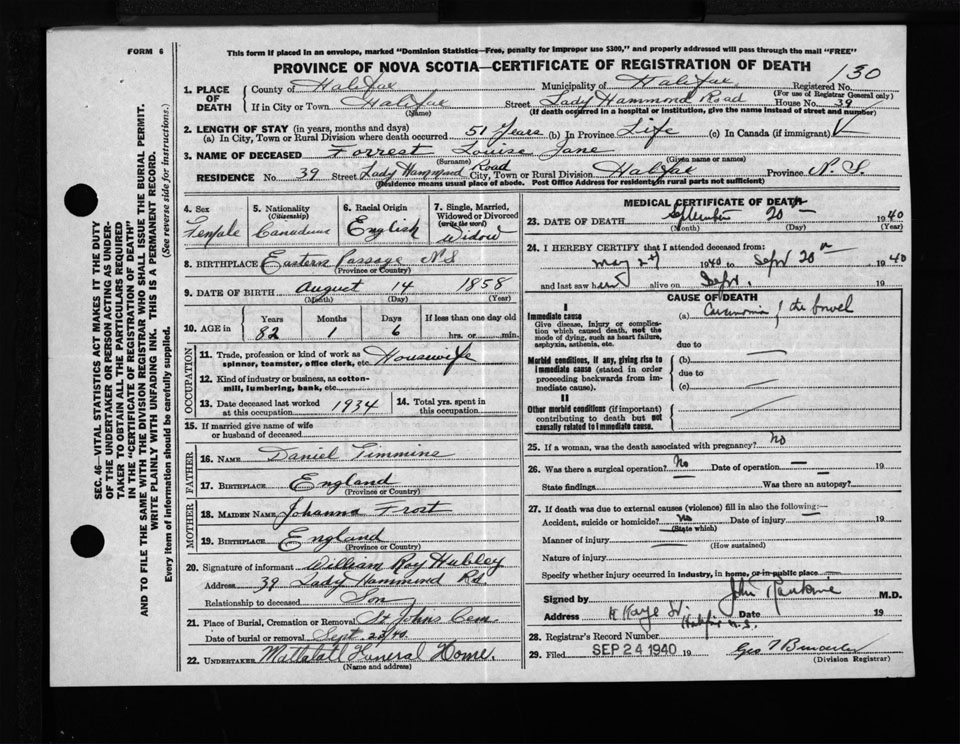 FORM 6
This form if placed in an envelope, marked "Dominion Statistics—Free, penalty for improper use $300," and properly addressed will pass through the mail "FREE"
PROVINCE OF NOVA SCOTIA—CERTIFICATE OF REGISTRATION OF DEATH
130
1. PLACE OF DEATH
County of Halifax Municipality of Halifax Registered No.
(For use of Registrar General only)
If in City or Town Halifax Street Lady Hammond Road House No. 39
(Name) (If death occurred in a hospital or institution, give the name instead of street and number)
2. LENGTH OF STAY (in years, months and days)
(a) In City, Town or Rural Division where death occurred 51 Years (b) In Province Life (c) In Canada (if immigrant)
3. NAME OF DECEASED Forrest Louise Jane
(Surname) (Given name or names)
RESIDENCE No. 39 Street Lady Hammond Road City, Town or Rural Division Halifax Province N. S.
(Residence means usual place of abode. Post Office Address for residents in rural parts not sufficient)
4. Sex
Female
5. Nationality
(Citizenship)
Canadian
6. Racial Origin
English
7. Single, Married, Widowed or Divorced
(write the word)
Widow
8. BIRTHPLACE Eastern Passage N S
(Province or Country)
9. DATE OF BIRTH August 14 1858
(Month) (Day) (Year)
10. AGE in
Years Months Days If less than one day old
82 1 6 hrs. or min.
OCCUPATION
11. Trade, profession or kind of work as spinner, teamster, office clerk, etc. Housewife
12. Kind of industry or business, as cotton-mill, lumbering, bank, etc.
13. Date deceased last worked at this occupation 1934
14. Total yrs. spent in this occupation
15. If married give name of wife or husband of deceased
FATHER
16. NAME Daniel Timmins
17. BIRTHPLACE England
(Province or Country)
MOTHER
18. MAIDEN NAME Johanna Frost
19. BIRTHPLACE England
(Province or Country)
20. Signature of informant William Roy Hubley
Address 39 Lady Hammond Rd
Relationship to deceased Son
21. Place of Burial, Cremation or Removal St Johns Cem.
Date of burial or removal Sept. 22/40.
22. UNDERTAKER Mattatall Funeral Home.
(Name and address)
MEDICAL CERTIFICATE OF DEATH
23. DATE OF DEATH September 20 1940
(Month) (Day) (Year)
24. I HEREBY CERTIFY that I attended deceased from:
May 1940 to Sept 20th 1940
and last saw her alive on Sept.
CAUSE OF DEATH
I
Immediate cause
Give disease, injury or complication which caused death, not the mode of dying, such as heart failure, asphyxia, asthenia, etc.
(a) Carcinoma of the bowel
due to
Morbid conditions, if any, giving rise to immediate cause (stated in order proceeding backwards from immediate cause).
(b)
due to
(c)
II
Other morbid conditions (if important) contributing to death but not causally related to immediate cause.
25. If a woman, was the death associated with pregnancy? No
26. Was there a surgical operation? No Date of operation — 19
State findings Was there an autopsy?
27. If death was due to external causes (violence) fill in also the following:—
Accident, suicide or homicide? No Date of injury — 19
(State which)
Manner of injury
(How sustained)
Nature of injury
Specify whether injury occurred in industry, in home, or in public place
Signed by John Rankine M.D.
Address Kaye St. Halifax N.S. Date 19
28. Registrar's Record Number
29. Filed SEP 24 1940 19
(Division Registrar)
SEC. 46—VITAL STATISTICS ACT MAKES IT THE DUTY OF THE UNDERTAKER OR PERSON ACTING AS UNDERTAKER TO OBTAIN ALL THE PARTICULARS REQUIRED IN THE "CERTIFICATE OF REGISTRATION OF DEATH" AND TO FILE THE SAME WITH THE DIVISION REGISTRAR WHO SHALL ISSUE THE BURIAL PERMIT.
WRITE PLAINLY WITH UNFADING INK. THIS IS A PERMANENT RECORD.
Every item of information should be carefully supplied. (See reverse side for instructions.)